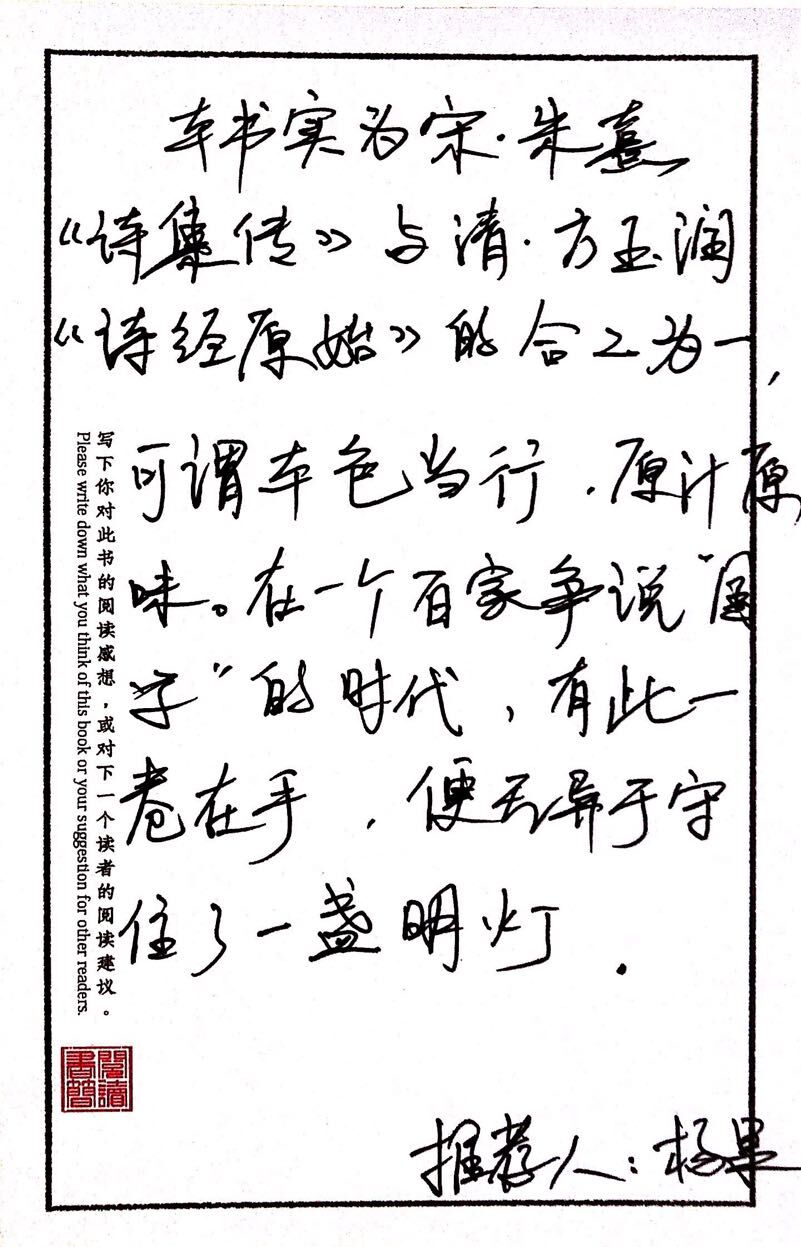 本书实为宋·朱熹
《诗集传》与清·方玉润
《诗经原始》的合二为一，
可谓本色当行，原汁原
味。在一个百家争说“国
学”的时代，有此一
卷在手，便无异于守
住了一盏明灯．
推荐人：杨果
写下你对此书的阅读感想，或对下一个读者的阅读建议。
Please write down what you think of this book or your suggestion for other readers.
閱讀
書簡